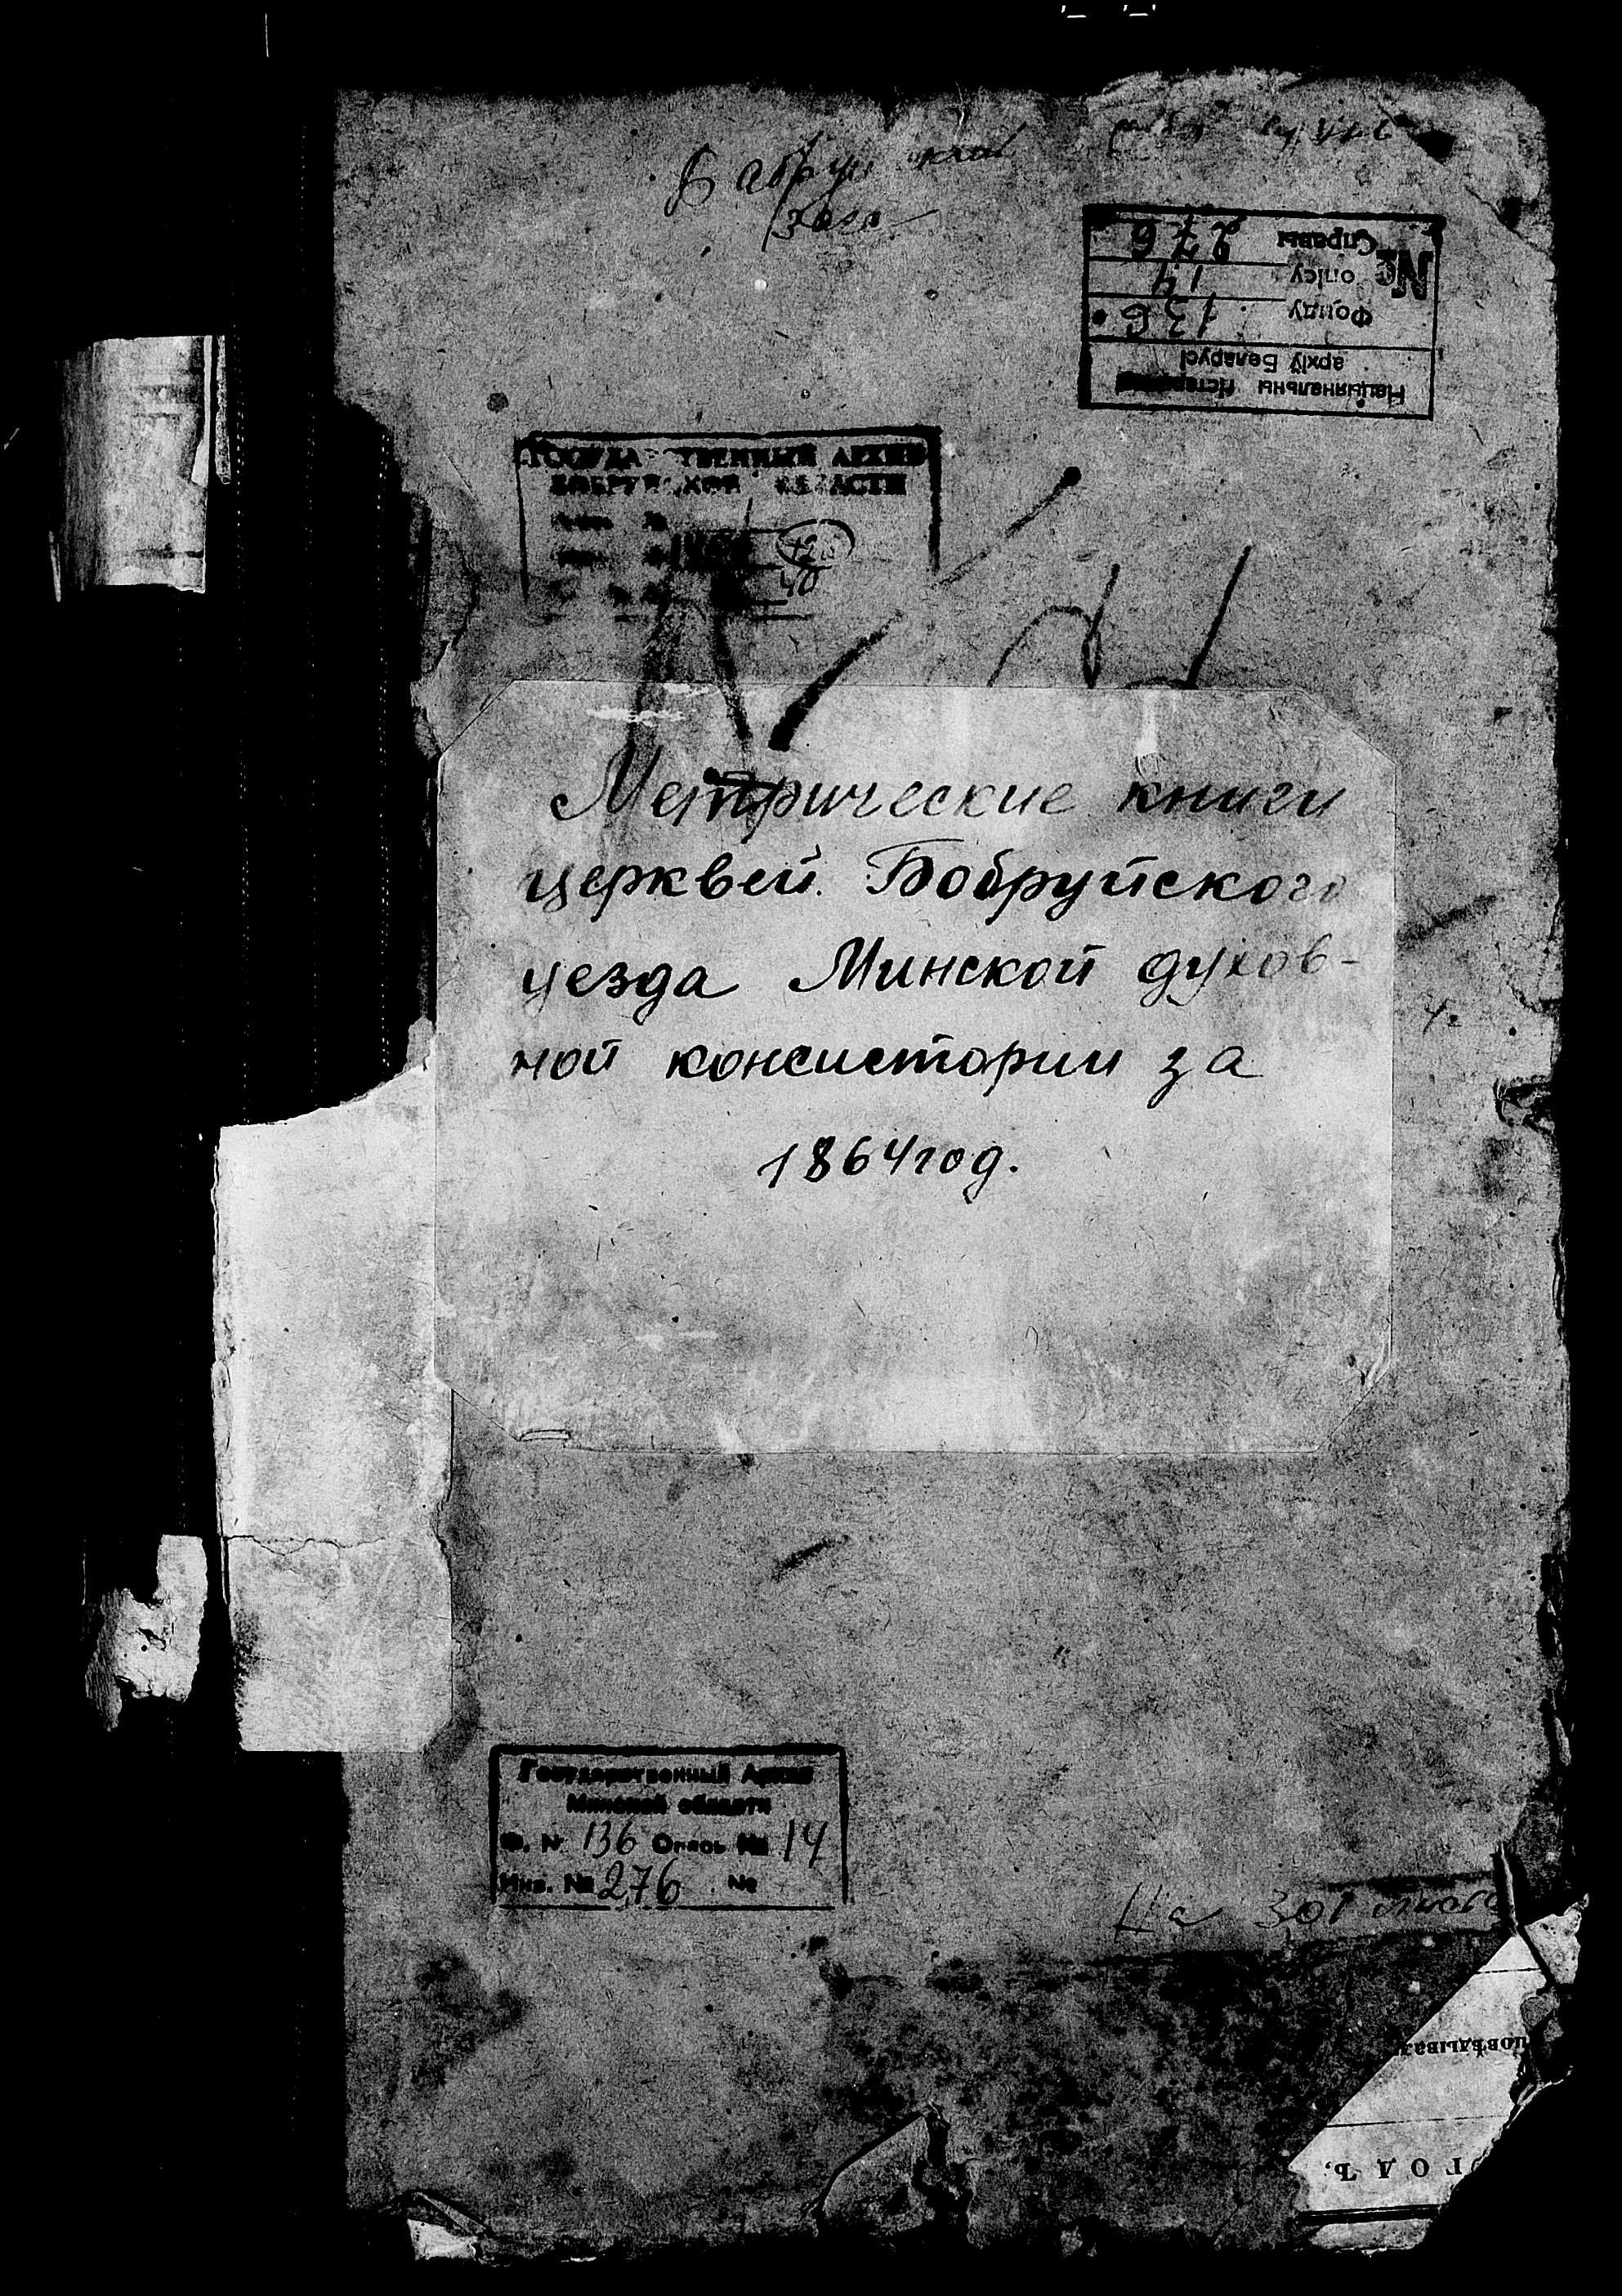 Нацыянальны
архіў Беларусі
Фонду 136
№ опісу 14
Справы 276
ГОСУДАРСТВЕННЫЙ АРХИВ
БОБРУЙСКОЙ ОБЛАСТИ
40
Метрические книги
церквей Бобруйского
уезда Минской духов-
ной консистории за
1864 год.
Государственный Архив
Минской области
Ф. № 136 Опись № 14
Инв. № 276 №
На 301
ГОДЪ.